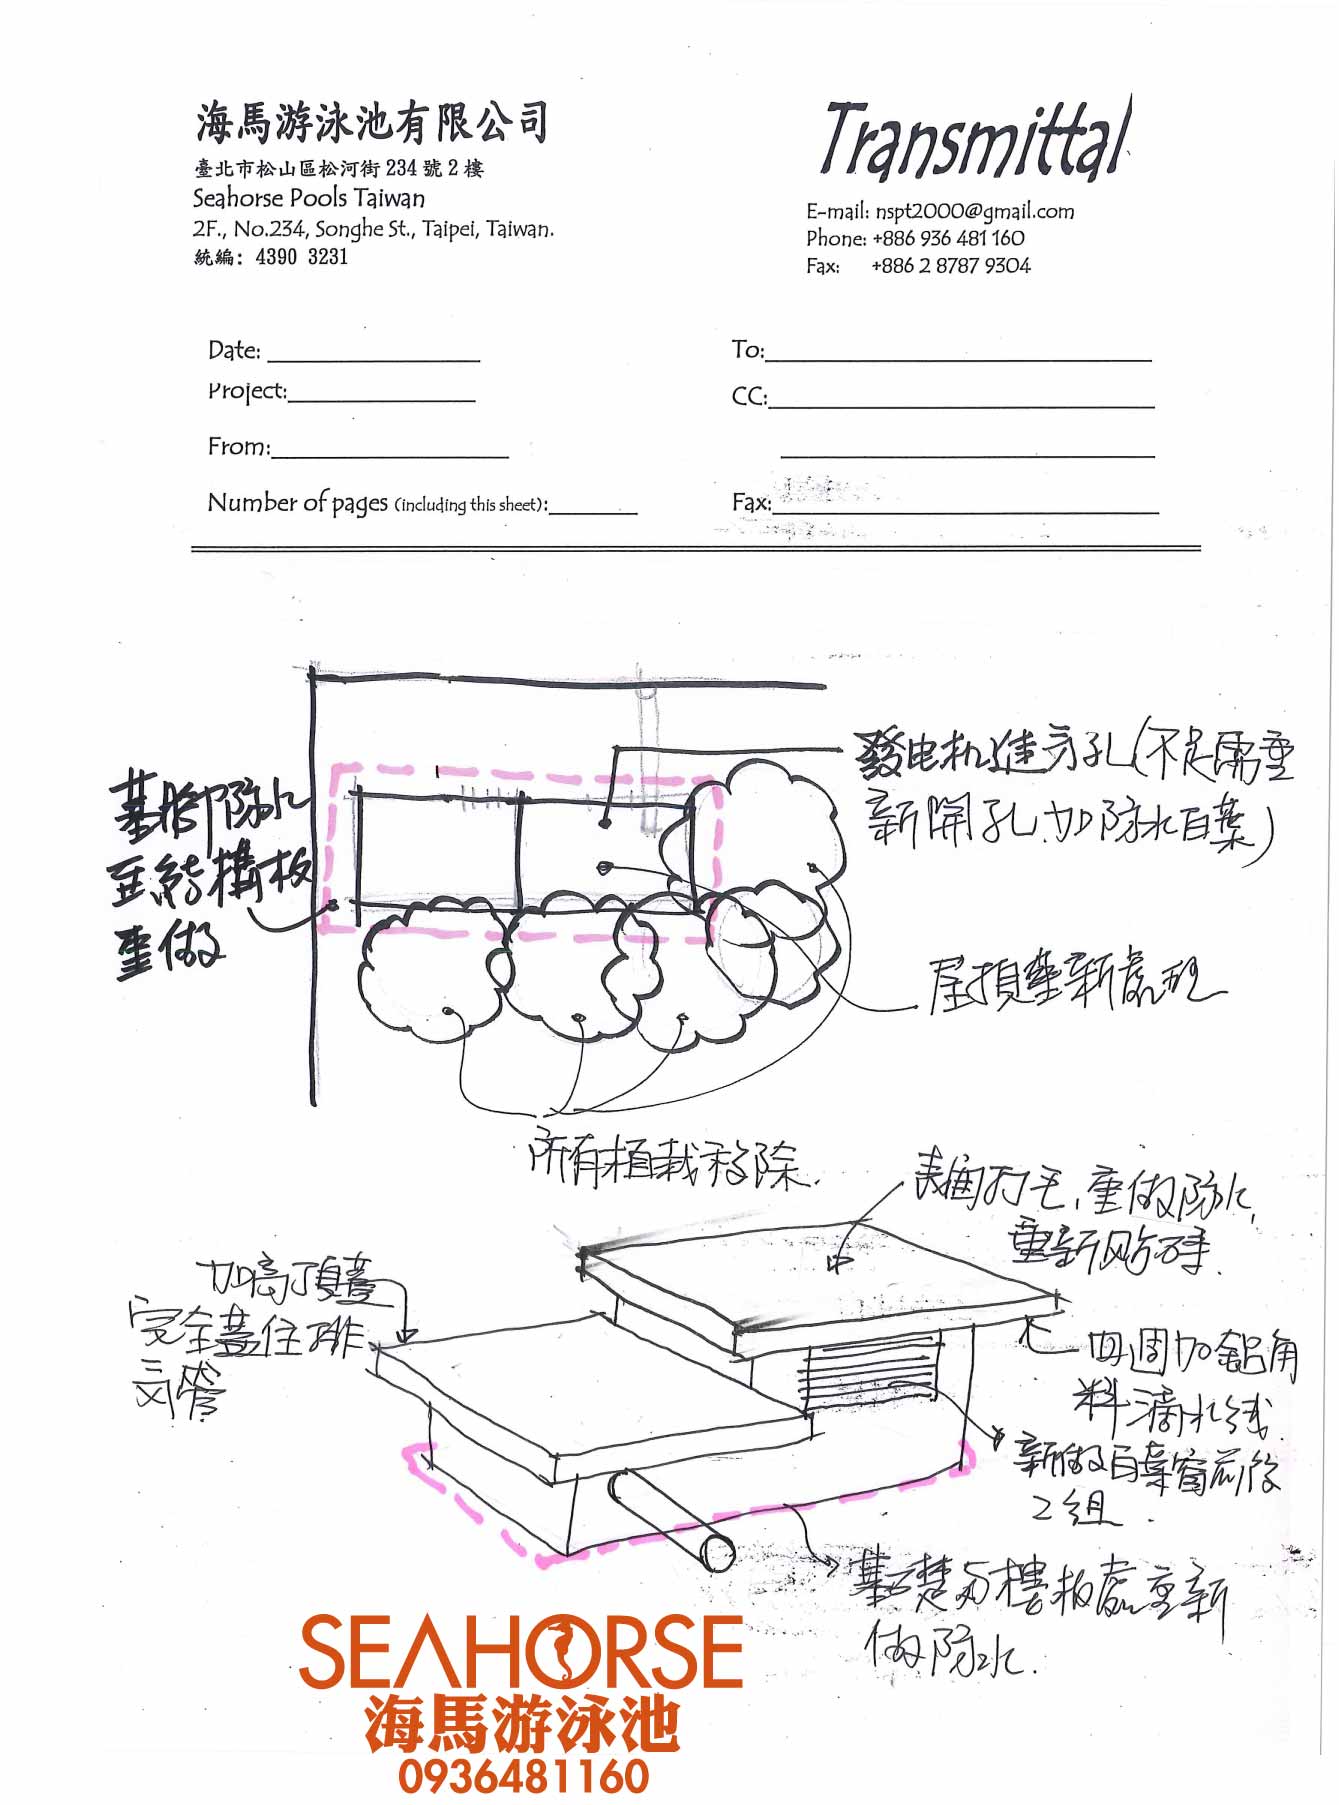 海馬游泳池有限公司
臺北市松山區松河街 234 號 2 樓
Seahorse Pools Taiwan
2F., No.234, Songhe St., Taipei, Taiwan.
統編: 4390 3231
Transmittal
E-mail: nspt2000@gmail.com
Phone: +886 936 481 160
Fax: +886 2 8787 9304
Date:
To:
Project:
CC:
From:
Number of pages (including this sheet):
Fax:
發电机進氣孔(不足需重
新開孔,加防水百葉)
基腳防水
至結構板
重做
屋頂重新處理
所有植栽移除.
表面打毛,重做防水,
重新貼磚.
加高頂蓋
完全蓋住排
氣管
四週加鋁角
料滴水线.
新做百葉窗前後
2組.
基礎与樓板處重新
做防水.
SEAHORSE
海馬游泳池
0936481160